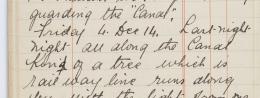 guarding the "Canal".
Friday 4. Dec 14. Last night
night all along the Canal
of a tree which is
railway line runs along
the light from